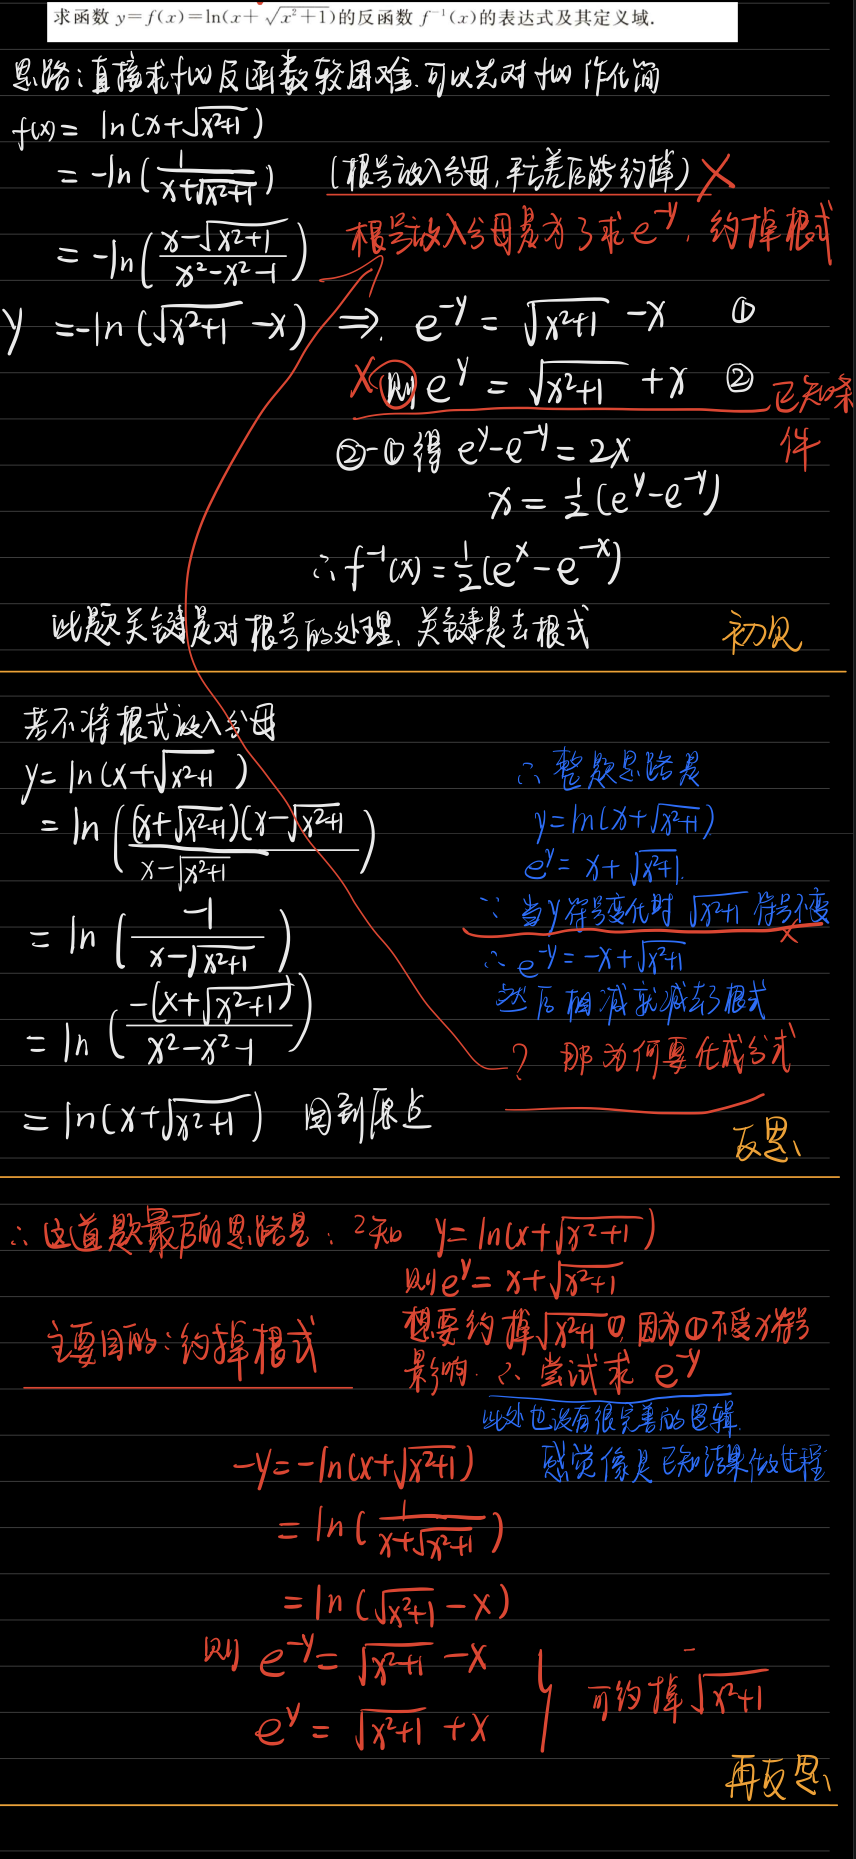 求函数 y=f(x)=ln(x+√(x²+1))的反函数 f⁻¹(x)的表达式及其定义域.
思路:直接求f(x)反函数较困难.可以先对f(x)作化简
f(x)= ln(x+√(x²+1))
= -ln(1/(x+√(x²+1))) (根号放入分母,平方差后能约掉) ×
根号放入分母是为了求e^(-y),约掉根式
= -ln((x-√(x²+1))/(x²-x²-1))
y =-ln(√(x²+1) -x) ⇒. e^(-y) = √(x²+1) -x ①
×则 e^y = √(x²+1) +x ② 已知条件
②-①得 e^y-e^(-y)=2x
x = ½(e^y-e^(-y))
∴f⁻¹(x)=½(e^x-e^(-x))
此题关键是对根号的处理、关键是去根式 初见
若不将根式放入分母
y= ln(x+√(x²+1))
= ln((x+√(x²+1))(x-√(x²+1))/(x-√(x²+1)))
= ln(-1/(x-√(x²+1)))
= ln(-(x+√(x²+1))/(x²-x²-1))
= ln(x+√(x²+1)) 回到原点
∴整题思路是
y=ln(x+√(x²+1))
e^y= x+√(x²+1).
∵当y符号变化时 √(x²+1) 符号不变 ×
∴e^(-y)=-x+√(x²+1)
然后相减就减去了根式
? 那为何要化成分式
反思
∴这道题最后的思路是: 已知 y= ln(x+√(x²+1))
则e^y= x+√(x²+1)
主要目的:约掉根式
想要约掉√(x²+1)①,因为①不受x符号
影响. ∴尝试求 e^(-y)
此处也没有很完善的逻辑.
感觉像是已知结果做过程
-y=-ln(x+√(x²+1))
= ln(1/(x+√(x²+1)))
= ln(√(x²+1) -x)
则 e^(-y)= √(x²+1) -x
e^y = √(x²+1) +x
可约掉√(x²+1)
再反思